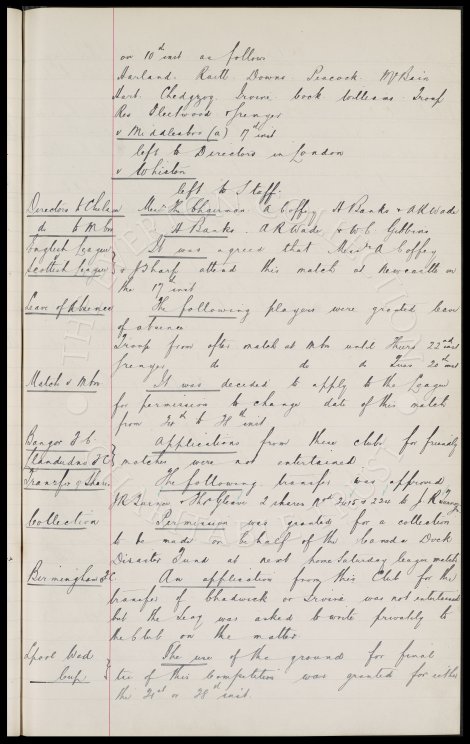 on 10th inst as follows
Harland. Raitt. Downs. Peacock. McBain
Hart. Chedgzoy. Irvine. Cock Williams. Troup
Res Fleetwood & Grenyer
v Middlesbro (a) 17th inst
left to Directors in London
v Whiston
left to Staff.
Directors to Chelsea Messrs The Chairman A Coffey, H Banks & A R Wade
do to M'bro H Banks. A R Wade & W C Gibbins
English League It was agreed that Messrs A Coffey
Scottish League & J Sharp attend this match at Newcastle on
the 17th inst
Leave of Absence The following players were granted leave
of absence
Troup from after match at M'bro until Thurs 22nd inst
Grenyer do do do Tues 20th inst
Match v M'bro It was decided to apply to the League
for permission to change date of this match
from 24th to 28th inst
Bangor F.C. Applications from these clubs for friendly
Llandudno F.C. matches were not entertained
Transfer of Shares The following transfer was approved
2 shares
Collection Permission was granted for a collection
to be made on behalf of the Canada Dock
Disaster Fund at next home Saturday league match
Birmingham F.C. An application from this Club for the
transfer of Chadwick or Irvine was not entertained
but the Secy was asked to write privately to
the Club on the matter
Lpool Wed The use of the ground for final
Cup tie of this Competition was granted for either
the 21st or 28th inst.